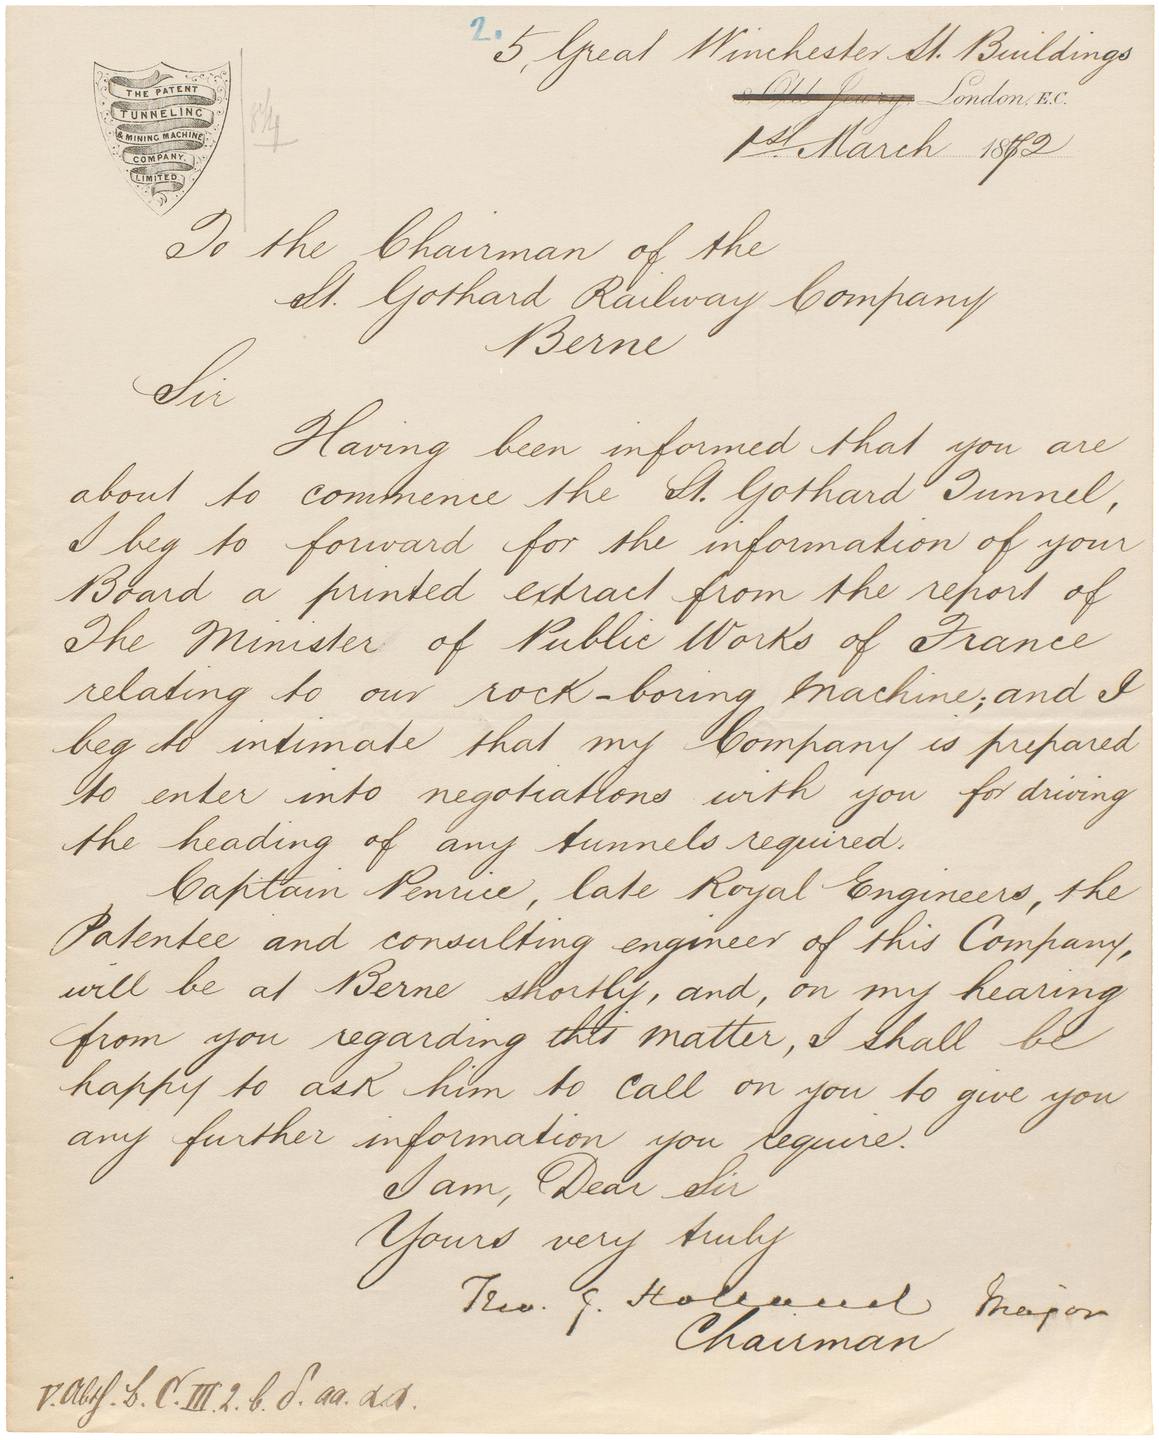 2.
5, Great Winchester St. Buildings
Old Jewry, London, E.C.
1st. March 1872
THE PATENT
TUNNELING
& MINING MACHINE
COMPANY,
LIMITED
To the Chairman of the
St. Gothard Railway Company
Berne
Sir
Having been informed that you are
about to commence the St. Gothard Tunnel,
I beg to forward for the information of your
Board a printed extract from the report of
The Minister of Public Works of France
relating to our rock-boring machine; and I
beg to intimate that my Company is prepared
to enter into negotiations with you for driving
the heading of any tunnels required.
Captain Penrice, late Royal Engineers, the
Patentee and consulting engineer of this Company,
will be at Berne shortly, and, on my hearing
from you regarding this matter, I shall be
happy to ask him to call on you to give you
any further information you require.
I am, Dear Sir
Yours very truly
J. Holland Major
Chairman
III. 2. b. δ. aa.